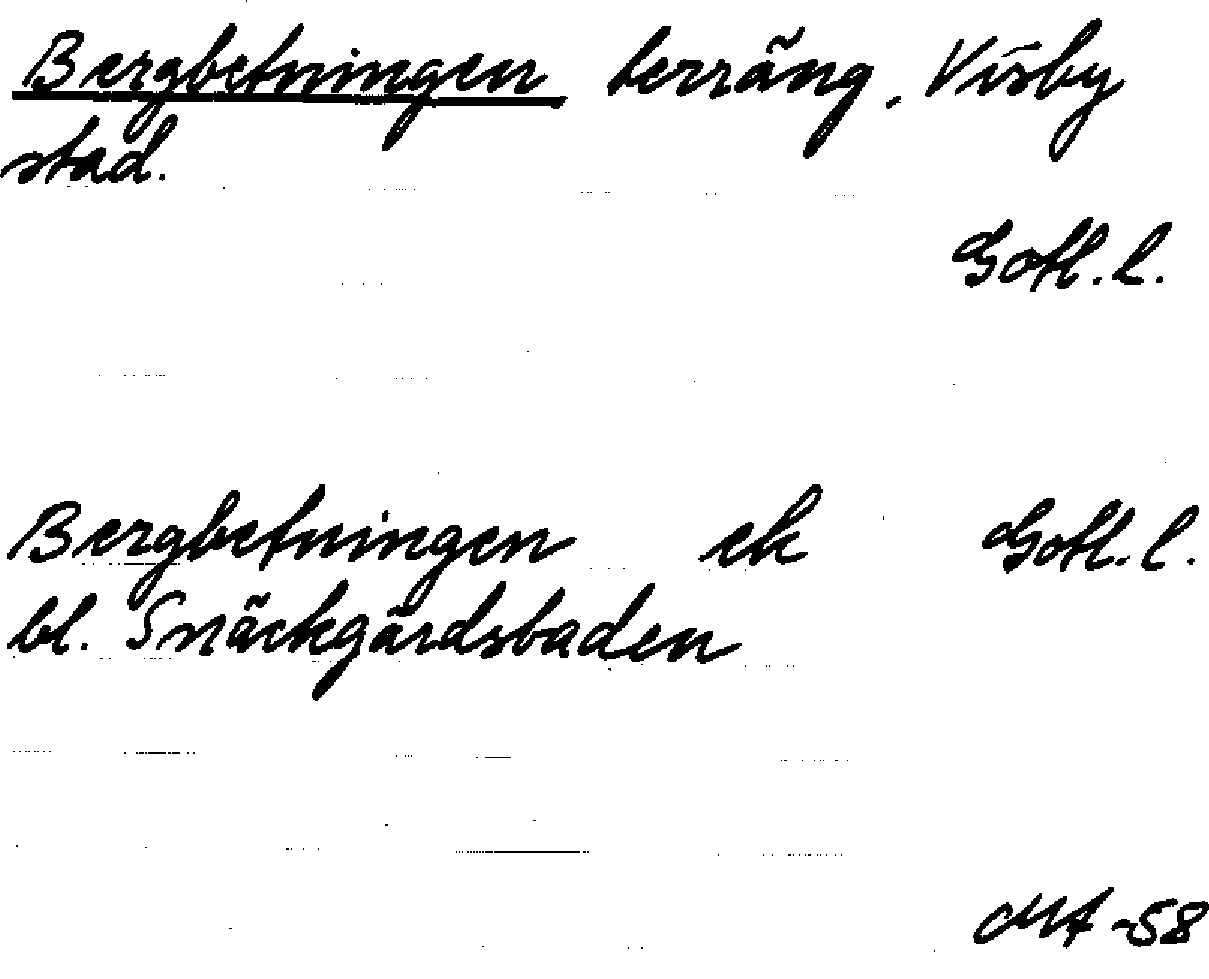 Bergbetningen terräng, Visby
stad.
Gotl. l.
Bergbetningen ek Gotl. l.
bl. Snäckgärdsbaden
MA -58